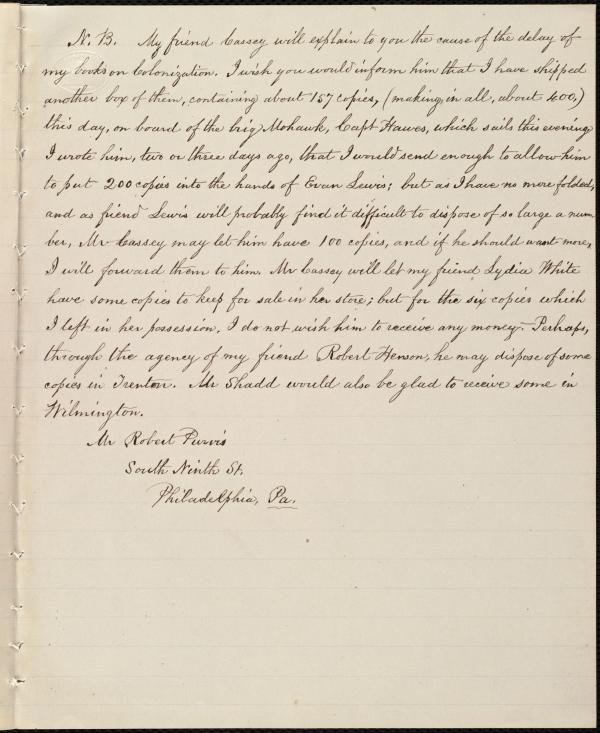 N. B. My friend Cassey will explain to you the cause of the delay of
my books on Colonization. I wish you would inform him that I have shipped
another box of them, containing about 157 copies, (making, in all, about 400,)
this day, on board of the brig Mohawk, Capt Hawes, which sails this evening.
I wrote him, two or three days ago, that I would send enough to allow him
to put 200 copies into the hands of Evan Lewis; but as I have no more folded,
and as friend Lewis will probably find it difficult to dispose of so large a num-
ber, Mr Cassey may let him have 100 copies, and if he should want more,
I will forward them to him. Mr Cassey will let my friend Lydia White
have some copies to keep for sale in her store; but for the six copies which
I left in her possession, I do not wish him to receive any money. Perhaps,
through the agency of my friend Robert Henson, he may dispose of some
copies in Trenton. Mr Shadd would also be glad to receive some in
Wilmington.
Mr Robert Purvis
South Ninth St.
Philadelphia, Pa.